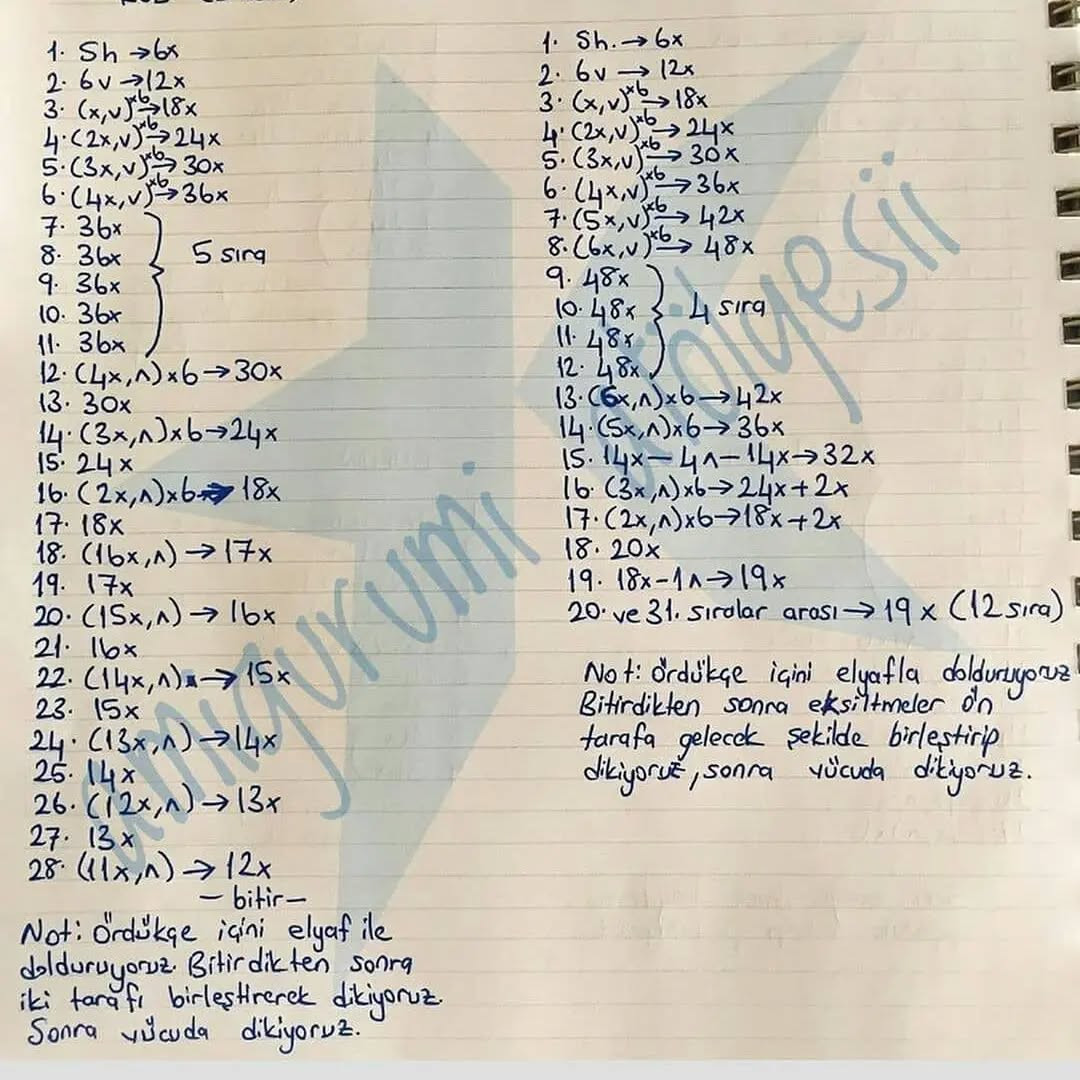 1. Sh →6x
2. 6v →12x
3. (x,v)×6→18x
4. (2x,v)×6→24x
5. (3x,v)×6→30x
6. (4x,v)×6→36x
7. 36x
8. 36x
9. 36x
10. 36x
11. 36x
5 sıra
12. (4x,ʌ)x6→30x
13. 30x
14. (3x,ʌ)x6→24x
15. 24x
16. (2x,ʌ)x6→ 18x
17. 18x
18. (16x,ʌ) →17x
19. 17x
20. (15x,ʌ) → 16x
21. 16x
22. (14x,ʌ) → 15x
23. 15x
24. (13x,ʌ)→14x
25. 14x
26. (12x,ʌ)→13x
27. 13x
28. (11x,ʌ)→ 12x
- bitir -
Not: Ördükçe içini elyaf ile
dolduruyoruz. Bitirdikten sonra
iki tarafı birleştirerek dikiyoruz.
Sonra vücuda dikiyoruz.
1. Sh. → 6x
2. 6v → 12x
3. (x,v)×6→18x
4. (2x,v)×6→ 24x
5. (3x,v)×6→ 30x
6. (4x,v)×6→36x
7. (5x,v)×6→ 42x
8. (6x,v)×6→ 48x
9. 48x
10. 48x
11. 48x
12. 48x
4 sıra
13. (6x,ʌ)x6→42x
14. (5x,ʌ)x6→36x
15. 14x-4ʌ-14x→32x
16. (3x,ʌ)x6→24x+2x
17. (2x,ʌ)x6→18x+2x
18. 20x
19. 18x-1ʌ→19x
20. ve 31. sıralar arası→ 19x (12 sıra)
Not: Ördükçe içini elyafla dolduruyoruz
Bitirdikten sonra eksiltmeler ön
tarafa gelecek şekilde birleştirip
dikiyoruz, sonra vücuda dikiyoruz.
amigurumi atölyesii